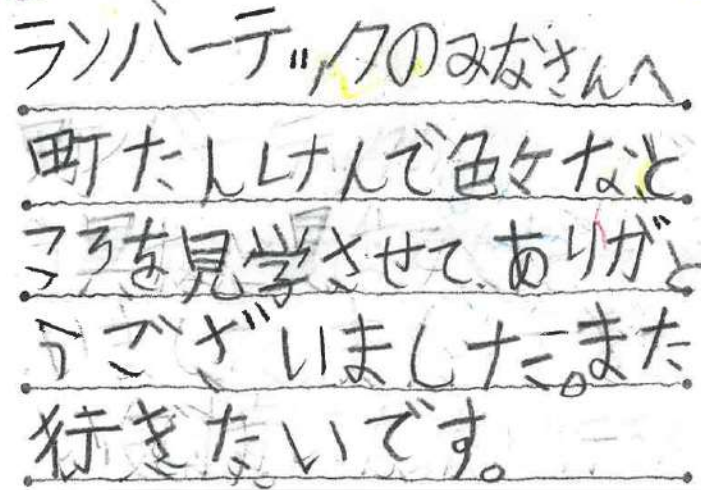 ランバーテックのみなさんへ
町たんけんで色々なと
ころを見学させて、ありがと
うございました。また
行きたいです。